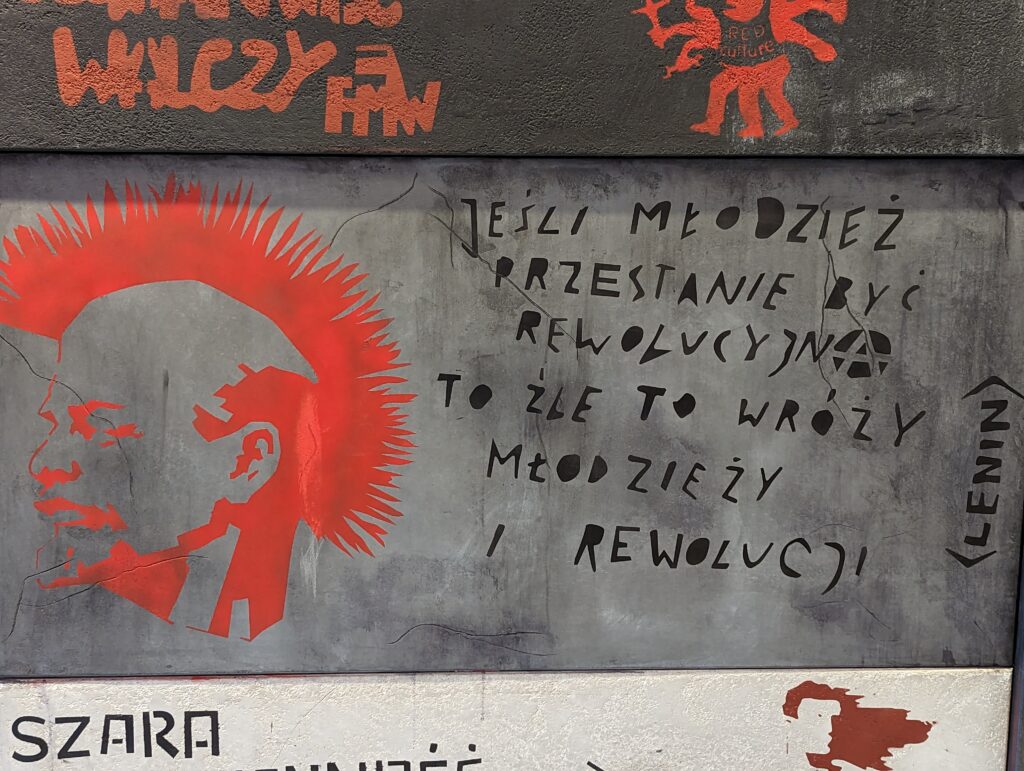 WALCZY
FMW
RED
Culture
JEŚLI MŁODZIEŻ
PRZESTANIE BYĆ
REWOLUCYJNA
TO ŹLE TO WRÓŻY
MŁODZIEŻY
I REWOLUCJI
(LENIN)
SZARA